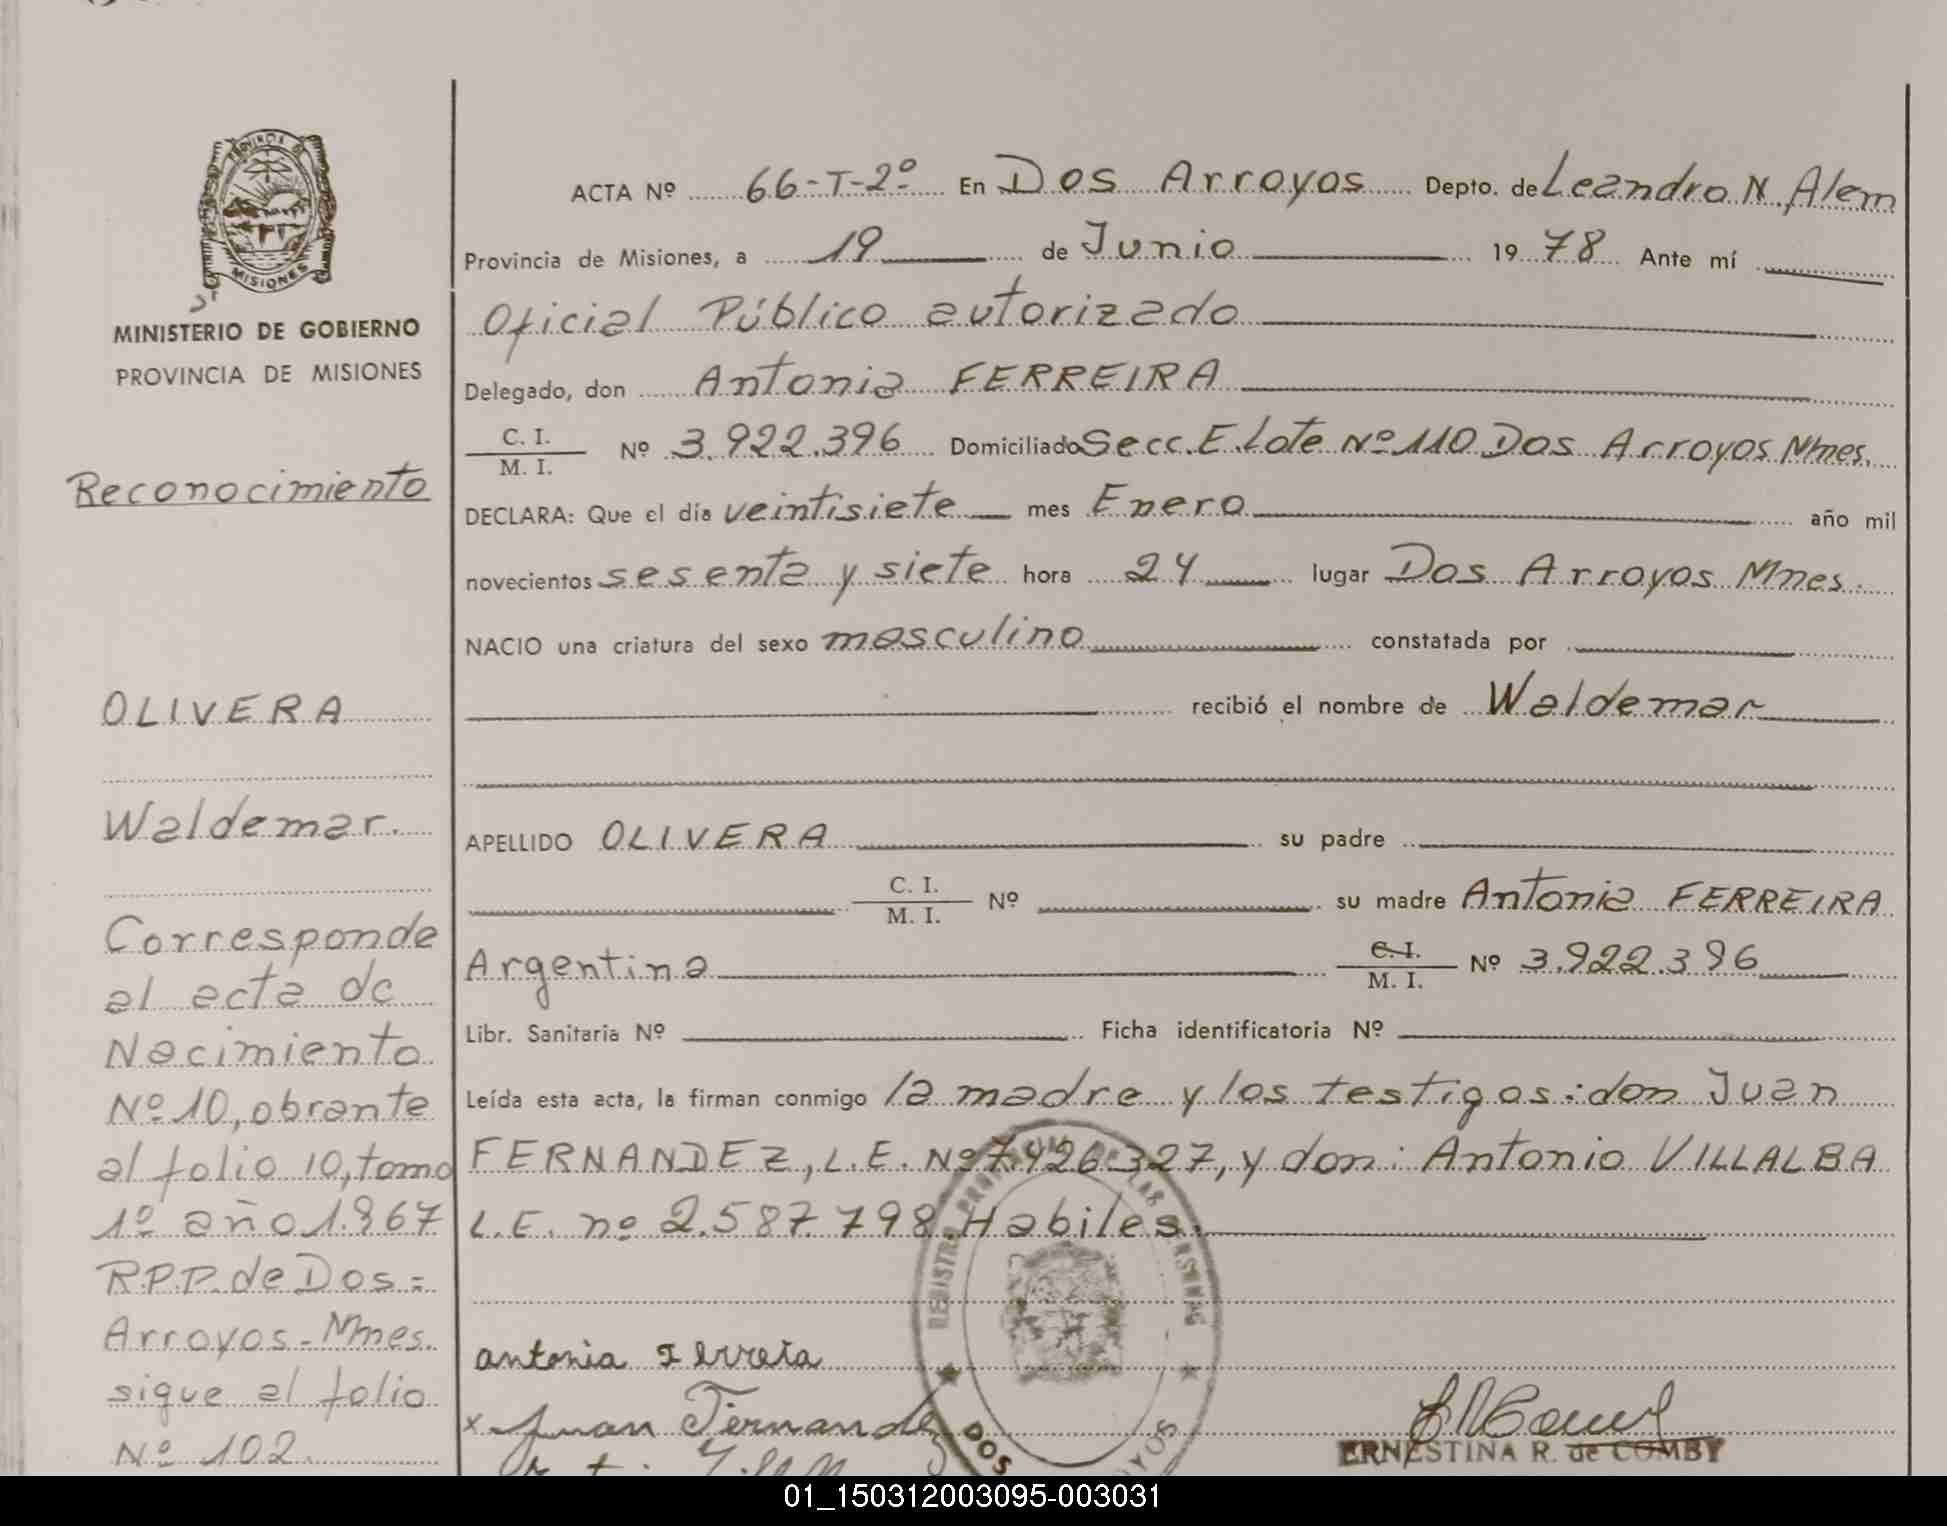 PROVINCIA DE
MISIONES
MINISTERIO DE GOBIERNO
PROVINCIA DE MISIONES
Reconocimiento
OLIVERA
Waldemar.
Corresponde
al acta de
Nacimiento
Nº 10, obrante
al folio 10, tomo
1º año 1.967
R.P.P. de Dos=
Arroyos-Mnes.
sigue al folio
Nº 102.
ACTA Nº 66-T-2º En Dos Arroyos Depto. de Leandro N. Alem
Provincia de Misiones, a 19 de Junio 19 78 Ante mí
Oficial Público autorizado
Delegado, don Antonia FERREIRA
C. I.
M. I. Nº 3.922.396 Domiciliado Secc. E. Lote Nº 110 Dos Arroyos Mnes.
DECLARA: Que el día veintisiete mes Enero año mil
novecientos sesenta y siete hora 24 lugar Dos Arroyos Mnes.
NACIO una criatura del sexo masculino constatada por
recibió el nombre de Waldemar
APELLIDO OLIVERA su padre
C. I.
M. I. Nº su madre Antonia FERREIRA
Argentina C. I.
M. I. Nº 3.922.396
Libr. Sanitaria Nº Ficha identificatoria Nº
Leída esta acta, la firman conmigo la madre y los testigos: don Juan
FERNANDEZ, L.E. Nº 7.426.327, y don: Antonio VILLALBA
L.E. nº 2.587.798 Habiles.
REGISTRO PROVINCIAL DE LAS PERSONAS
DOS ARROYOS
antonia Ferreira
x Juan Fernandez
ERNESTINA R. de COMBY
01_150312003095-003031